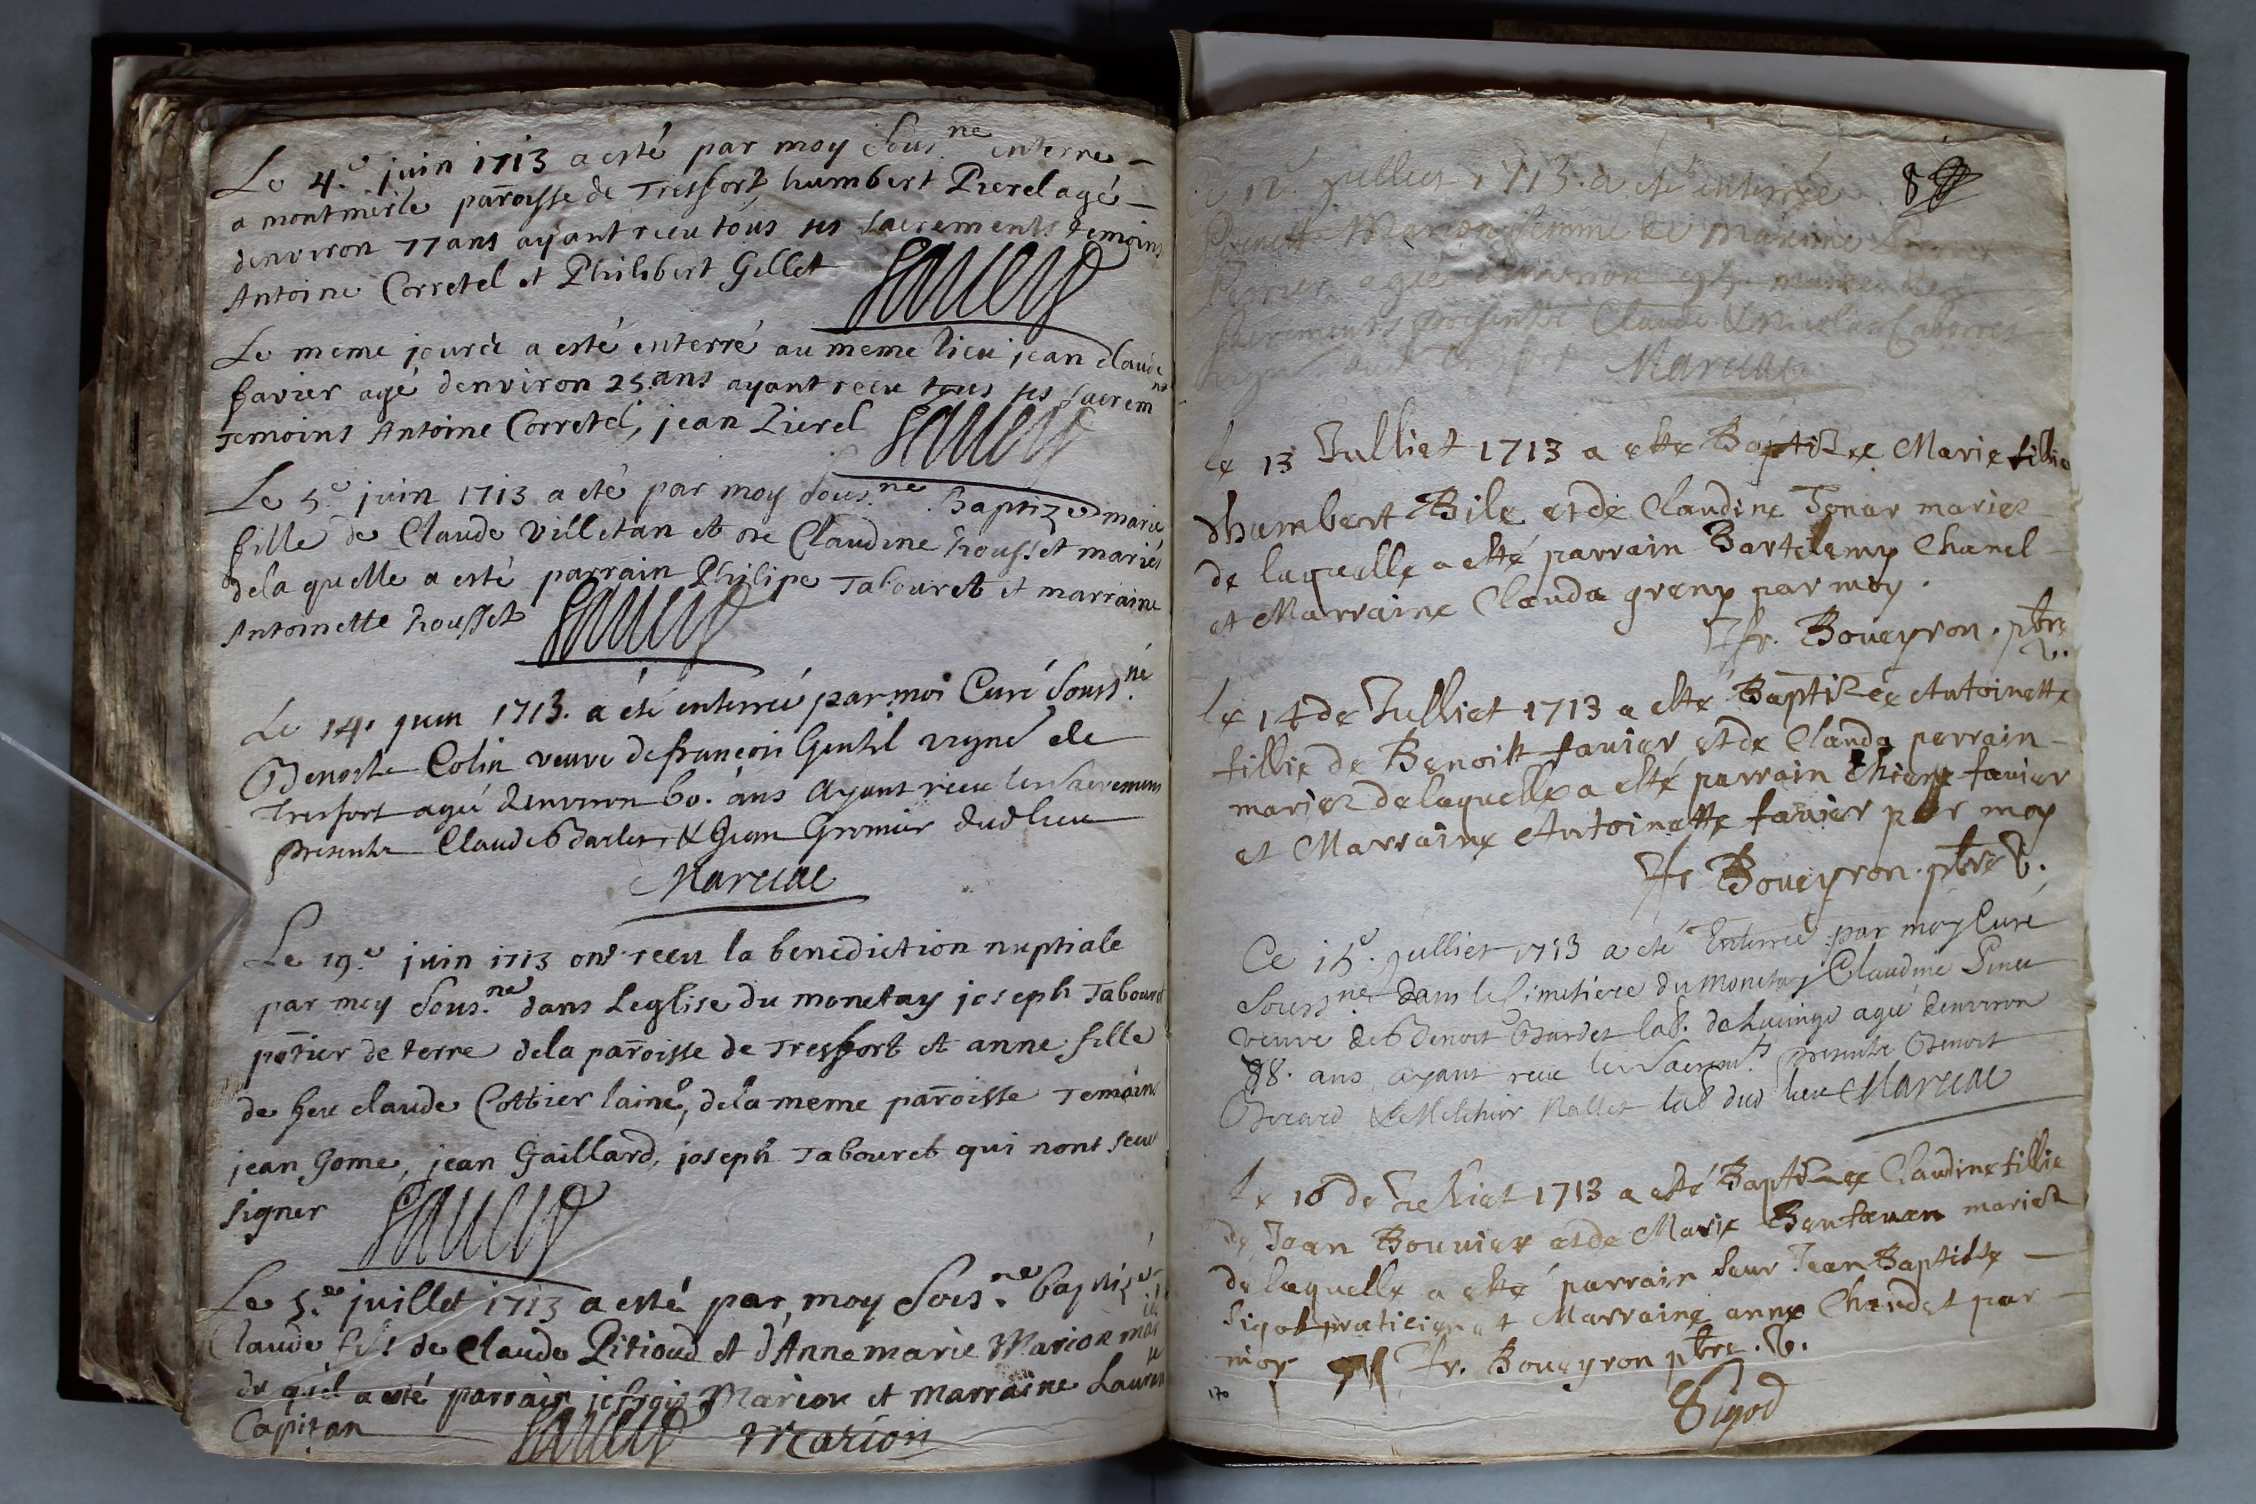 Le 4.e juin 1713 a esté par moy Sous.né enterré
a montmerle paroisse de Tresfort humbert Pierel agé
denviron 77 ans ayant rieu tous ses sacrements temoins
Antoine Corretel et Philibert Gillet
Le meme jourdt a esté enterré au meme lieu jean claude
favier agé denviron 25. ans ayant receu tous ses sacrem.nts
temoins Antoine Corretel, jean Pierel
Le 5.e juin 1713 a eté par moy Sous.né Baptizeé marie
fille de Claude Villetan et de Claudine housset mariés
dela quelle a esté parrain Philipe Tabouret et marraine
Antoinette housset
Le 14. juin 1713. a été enterreé par moi Curé Souss.né
Benoite Colin veuve de françois Gentil vigne de
Tresfort ageé denviron 60. ans Ayant receu les Sacremens
presents Claude Barlet, & Jean Gromier dud lieu
Marciac
Le 19.e juin 1713 ont receu la benediction nuptiale
par moy Sous.né dans Leglise du monetay joseph Tabouret
potier de terre dela paroisse de Tresfort et anne fille
de feu claude Cottier lainé, dela meme paroisse Temoins
jean Gome, jean Gaillard, joseph Tabouret qui nont sceu
signer
Le 5.e juillet 1713 a esté par moy Sous.né baptizé
Claude fils de Claude Pitioud et d'Anne marie Marion
du q'el a esté parrain Marion et marraine
Capitan
Marion
Juillet 1713. a été enterrée
Marion femme de
agée denviron
Sacrements presents Claude & Nicolas
Marciac
Le 13 Julliet 1713 a esté Baptizee Marie fillie
dhumbert Bile et de Claudine Tenar mariez
de laquelle a esté parrain Bartelemy Chanel
et Marraine Clauda greny par moy.
fr. Boueyron. ptre v.
Le 14 de Julliet 1713 a esté Baptizée Antoinette
fillie de Benoist favier et de Clauda perrain
mariez de laquelle a esté parrain favier
et Marraine Antoinette favier par moy
fr Boueyron. ptre v.
Ce 15.e Julliet 1713 a eté Enterreé par moy Curé
Souss.né dans le Cimetiere du Monetay Claudine
veuve de Benoit Bardet lab. de ageé denviron
88. ans ayant receu les Sacrem.ts presents Benoit
& Melchior Mallet lab dud lieu Marciac
Le 16 de Julliet 1713 a esté Baptizee Claudine fillie
de Jean Bouvier et de Marie mariez
de laquelle a esté parrain Sieur Jean Baptiste
Sigod praticien et Marraine anne Chaudet par
moy fr. Boueyron ptre. v.
Sigod
170